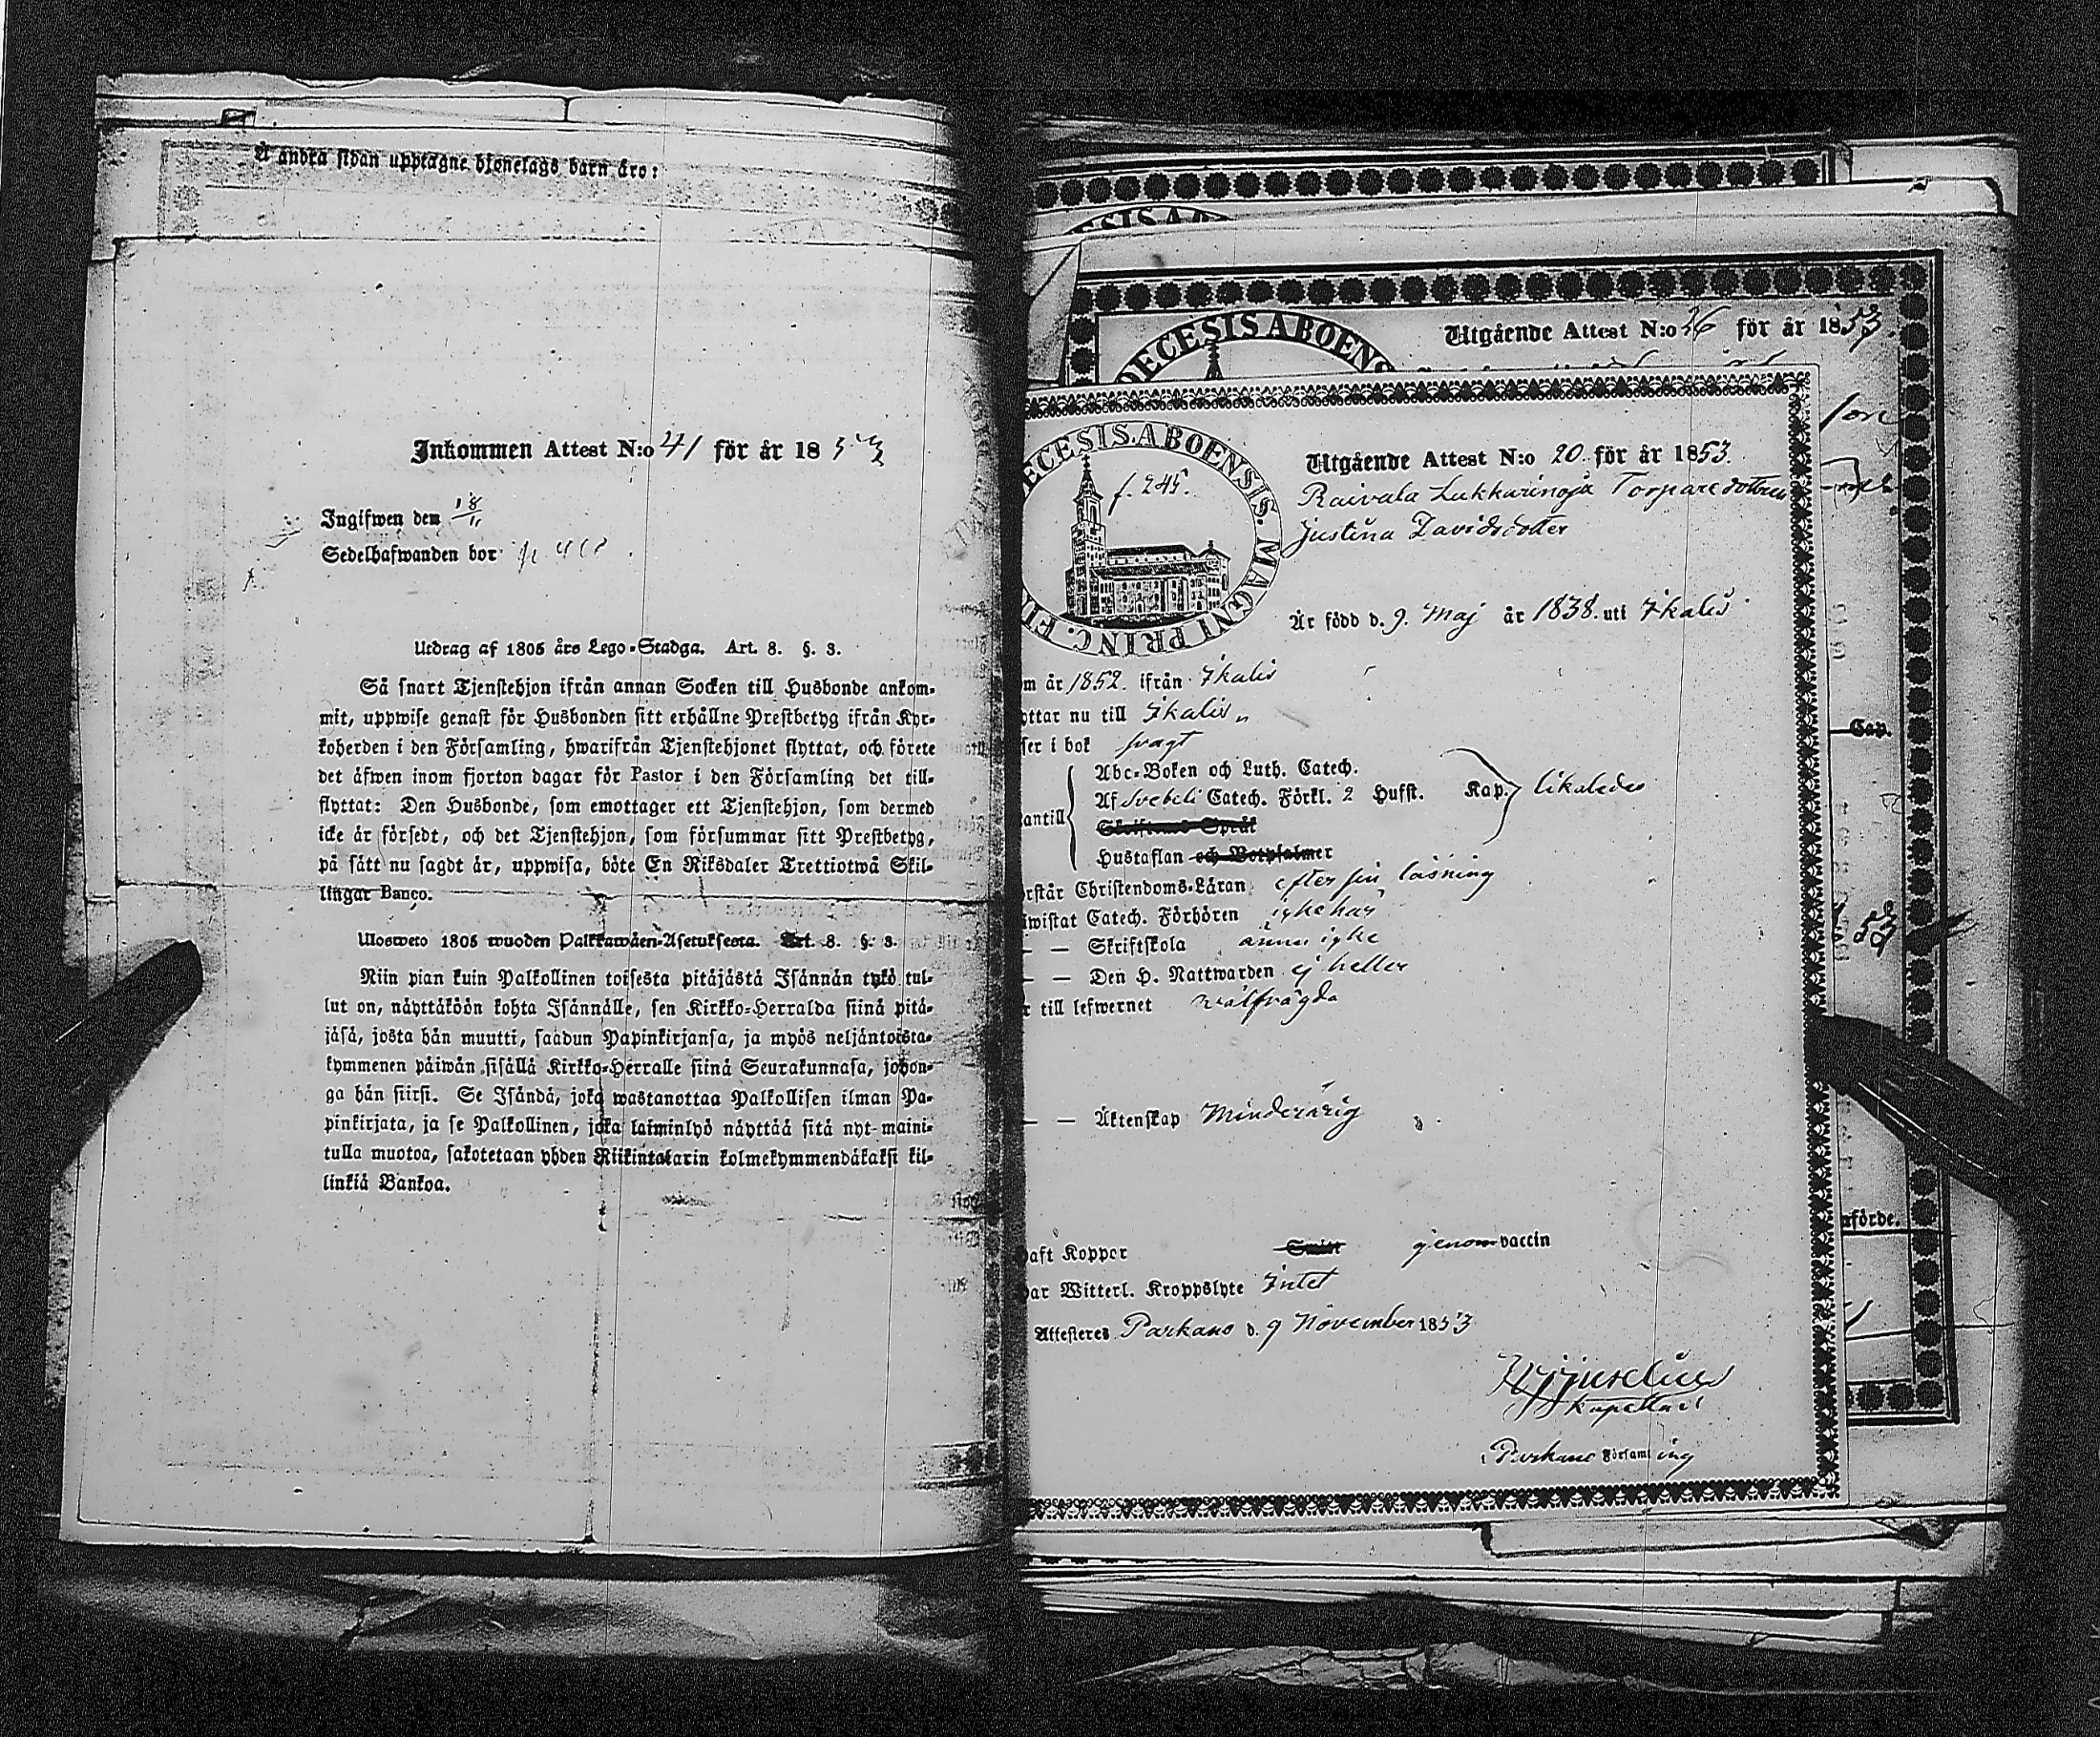 Å andra sidan upptagne hjonelags barn äro:
Inkommen Attest N:o 41 för år 1853
Ingifwen den 18/11
Sedelhafwanden bor
Utdrag af 1805 års Lego-Stadga. Art. 8. §. 3.
Så snart Tjenstehjon ifrån annan Socken till Husbonde ankom-
mit, uppwise genast för Husbonden sitt erhållne Prestbetyg ifrån Kyr-
koherden i den Församling, hwarifrån Tjenstehjonet flyttat, och förete
det äfwen inom fjorton dagar för Pastor i den Församling det till-
flyttat: Den Husbonde, som emottager ett Tjenstehjon, som dermed
icke är försedt, och det Tjenstehjon, som försummar sitt Prestbetyg,
på sätt nu sagdt är, uppwisa, böte En Riksdaler Trettiotwå Skil-
lingar Banco.
Ulosweto 1805 wuoden Palkkawäen-Asetuksesta. Art. 8. §. 3.
Niin pian kuin Palkollinen toisesta pitäjästä Isännän tykö tul-
lut on, näyttäköön kohta Isännälle, sen Kirkko-Herralda siinä pitä-
jäsä, josta hän muutti, saadun Papinkirjansa, ja myös neljäntoista-
kymmenen päiwän sisällä Kirkko-Herralle siinä Seurakunnasa, johon-
ga hän siirsi. Se Isändä, joka wastanottaa Palkollisen ilman Pa-
pinkirjata, ja se Palkollinen, joka laiminlyö näyttää sitä nyt maini-
tulla muotoa, sakotetaan yhden Riikintalarin kolmekymmendäkaksi kil-
linkiä Bankoa.
ECESIS ABOENS
Utgående Attest N:o 26 för år 1853.
Cap.
53
förde.
ECESIS. ABOENSIS. MAGNI PRINC. FI
f. 245.
Utgående Attest N:o 20. för år 1853.
Raivala Lukkarinoja Torparedottren
Justina Davidsdotter
Är född d. 9. Maj år 1838. uti Ikalis
m år 1852. ifrån Ikalis
ottar nu till Ikalis
ser i bok svagt
Abc-Boken och Luth. Catech.
Af Svebeli Catech. Förkl. 2 Hufst. Kap. likaledes
antill
Skriftens Språk
Hustaflan och Botpsalmer
rstår Christendoms-Läran efter sin läsning
iwistat Catech. Förhören icke har
— — Skriftskola ännu icke
— — Den H. Nattwarden ej heller
r till lefwernet wälfrägda
— — Äktenskap Minderårig
aft Koppor Smitt genom vaccin
ar Witterl. Kroppslyte Intet
Attesteres Parkano d. 9 November 1853
Kapellan
i Parkano Församling